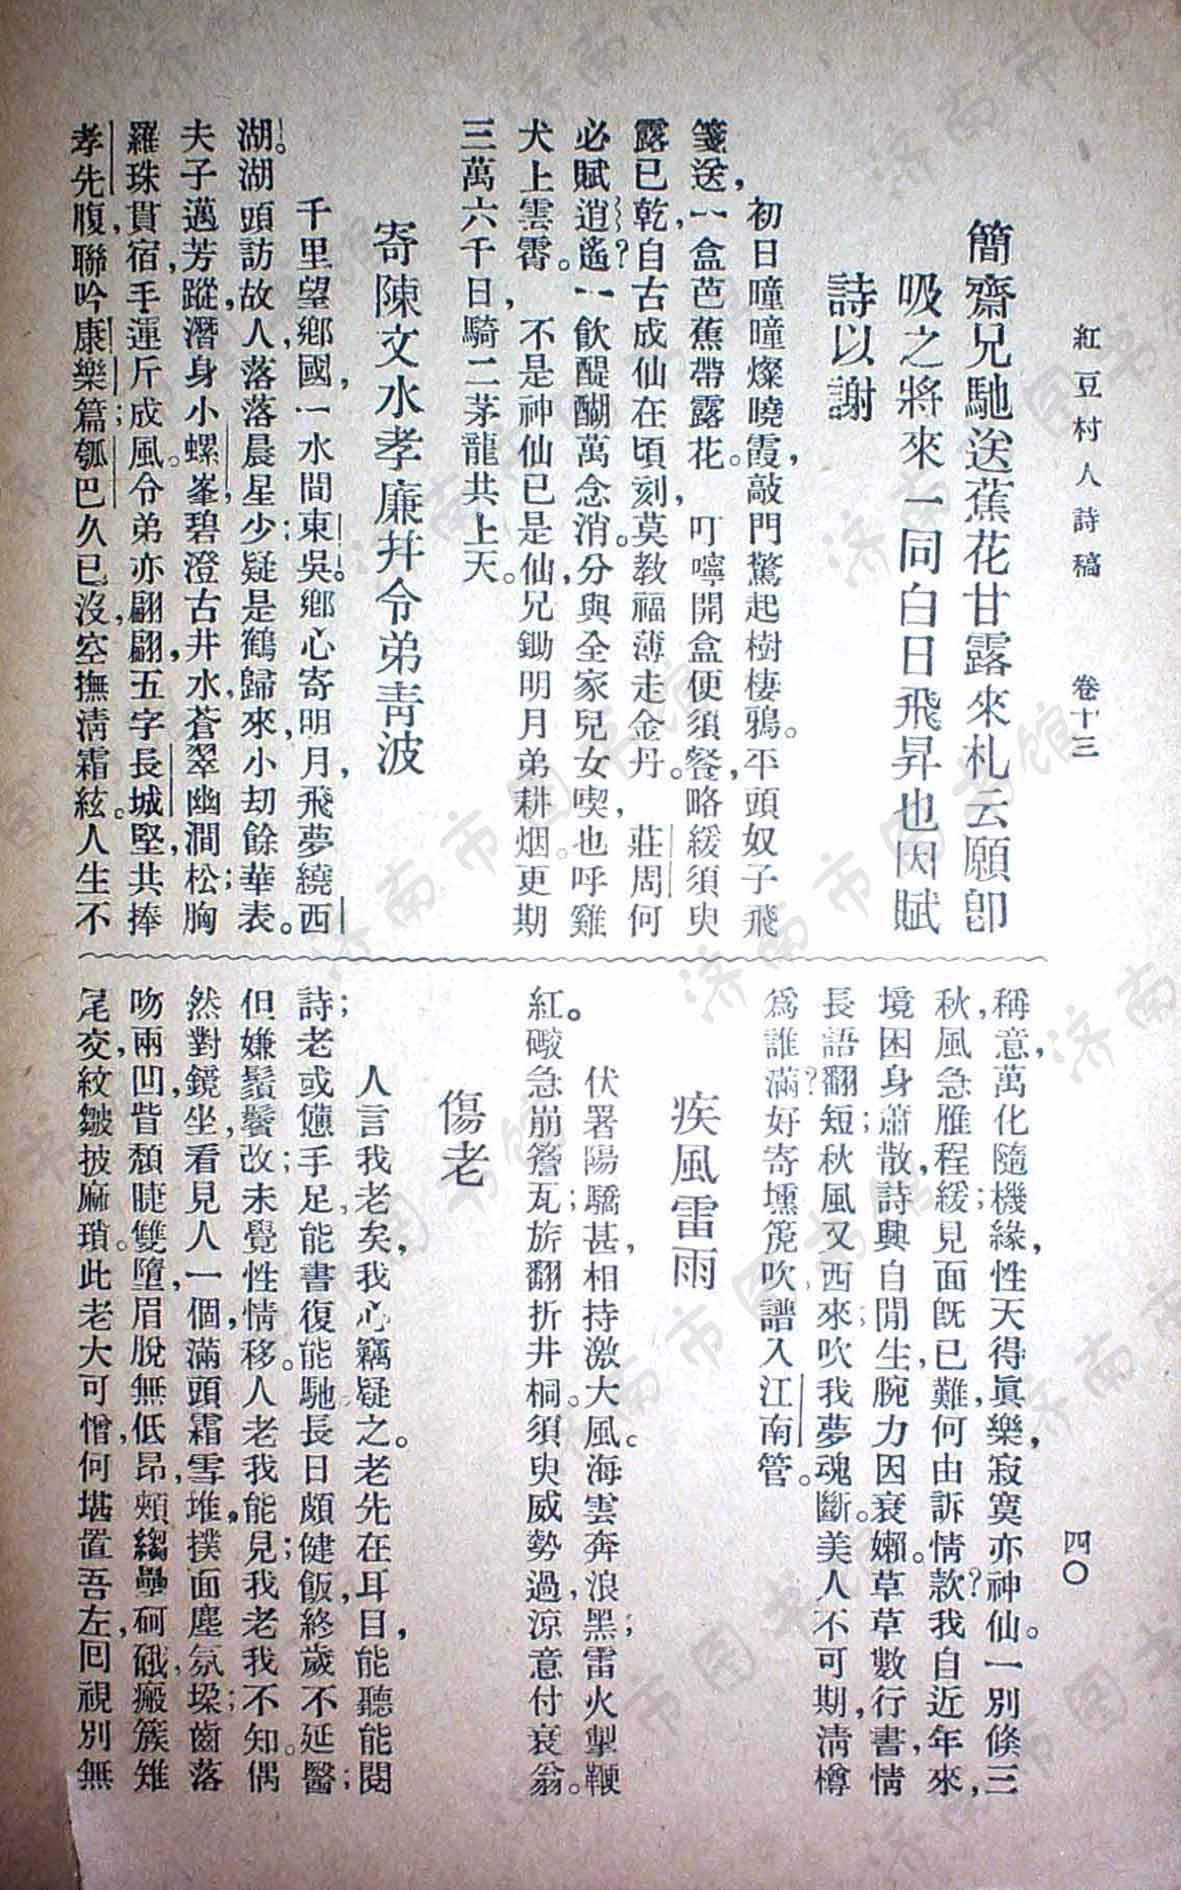 紅豆村人詩稿　卷十三　四〇
簡齋兄馳送蕉花甘露來札云願卽
吸之將來一同白日飛昇也因賦
詩以謝
初日曈曈燦曉霞，敲門驚起樹棲鴉。平頭奴子飛
箋送，一盒芭蕉帶露花。　叮嚀開盒便須餐，略緩須臾
露已乾，自古成仙在頃刻，莫教福薄走金丹。　莊周何
必賦逍遙？一飲醍醐萬念消。分與全家兒女喫，也呼雞
犬上雲霄。　不是神仙已是仙，兄鋤明月弟耕烟。更期
三萬六千日，騎二茅龍共上天。
寄陳文水孝廉幷令弟靑波
千里望鄉國，一水間東吳。鄉心寄明月，飛夢繞西
湖。湖頭訪故人，落落晨星少；疑是鶴歸來，小刧餘華表。
夫子邁芳蹤，潛身小螺峯，碧澄古井水，蒼翠幽澗松；胸
羅珠貫宿，手運斤成風。令弟亦翩翩，五字長城堅，共捧
孝先腹，聯吟康樂篇；瓠巴久已沒，空撫淸霜絃。人生不
稱意，萬化隨機緣，性天得眞樂，寂寞亦神仙。一別倐三
秋，風急雁程緩；見面旣已難，何由訴情款？我自近年來，
境困身蕭散，詩興自閒生，腕力因衰嬾。草草數行書，情
長語翻短；秋風又西來，吹我夢魂斷。美人不可期，淸樽
爲誰滿？好寄壎篪吹，譜入江南管。
疾風雷雨
伏署陽驕甚，相持激大風。海雲奔浪黑，雷火掣鞭
紅。礮急崩簷瓦；旂翻折井桐。須臾威勢過，涼意付衰翁。
傷老
人言我老矣，我心竊疑之。老先在耳目，能聽能閱
詩；老或憊手足，能書復能馳；長日頗健飯，終歲不延醫；
但嫌鬚鬢改，未覺性情移。人老我能見；我老我不知。偶
然對鏡坐，看見人一個，滿頭霜雪堆，撲面塵氛垜；齒落
吻兩凹，眥頹睫雙墮，眉脫無低昂，頰縐壘砢硪，瘢簇雉
尾交，紋皺披麻瑣。此老大可憎，何堪置吾左，囘視別無